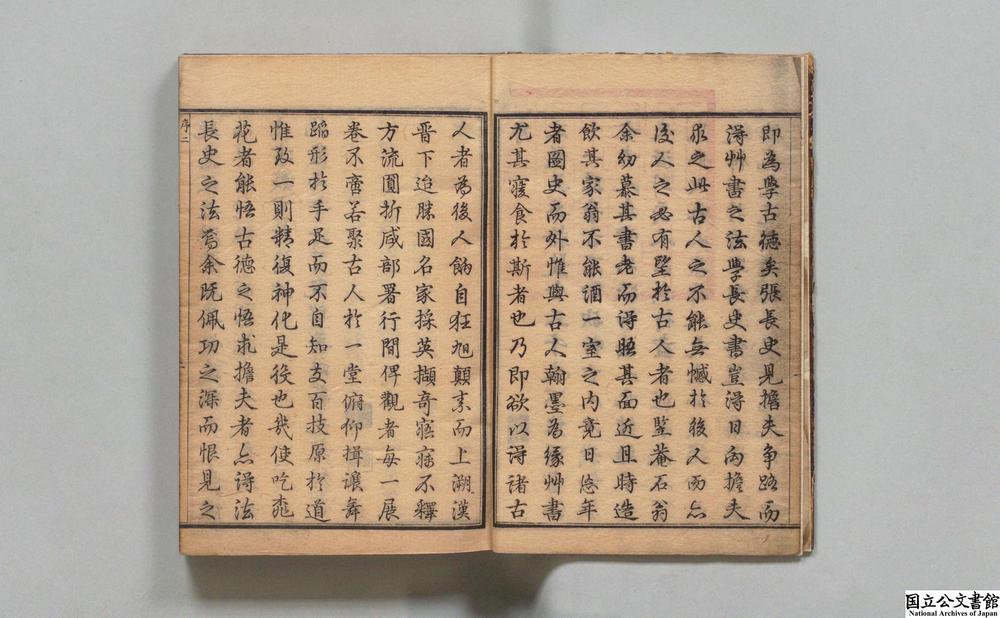 即為學古德矣張長史見擔夫争路而
得艸書之法學長史書豈得日向擔夫
求之此古人之不能無憾於後人而亦
後人之必有望於古人者也鑒菴石翁
余幼慕其書老而得晤其面近且時造
飲其家翁不能酒一室之内竟日悠年
者圖史而外惟與古人翰墨為緣艸書
尤其寢食於斯者也乃即欲以得諸古
人者為後人餉自狂旭顛素而上溯漢
晋下迨勝國名家採英擷奇寤寐不釋
方流圓折咸部署行間俾觀者每一展
卷不啻若聚古人於一堂俯仰揖讓舞
蹈形於手足而不自知夫百技原於道
惟致一則精復神化是役也幾使吃桃
花者能悟古德之悟求擔夫者亦得法
長史之法焉余既佩功之深而恨見之
序二
国立公文書館
National Archives of Japan